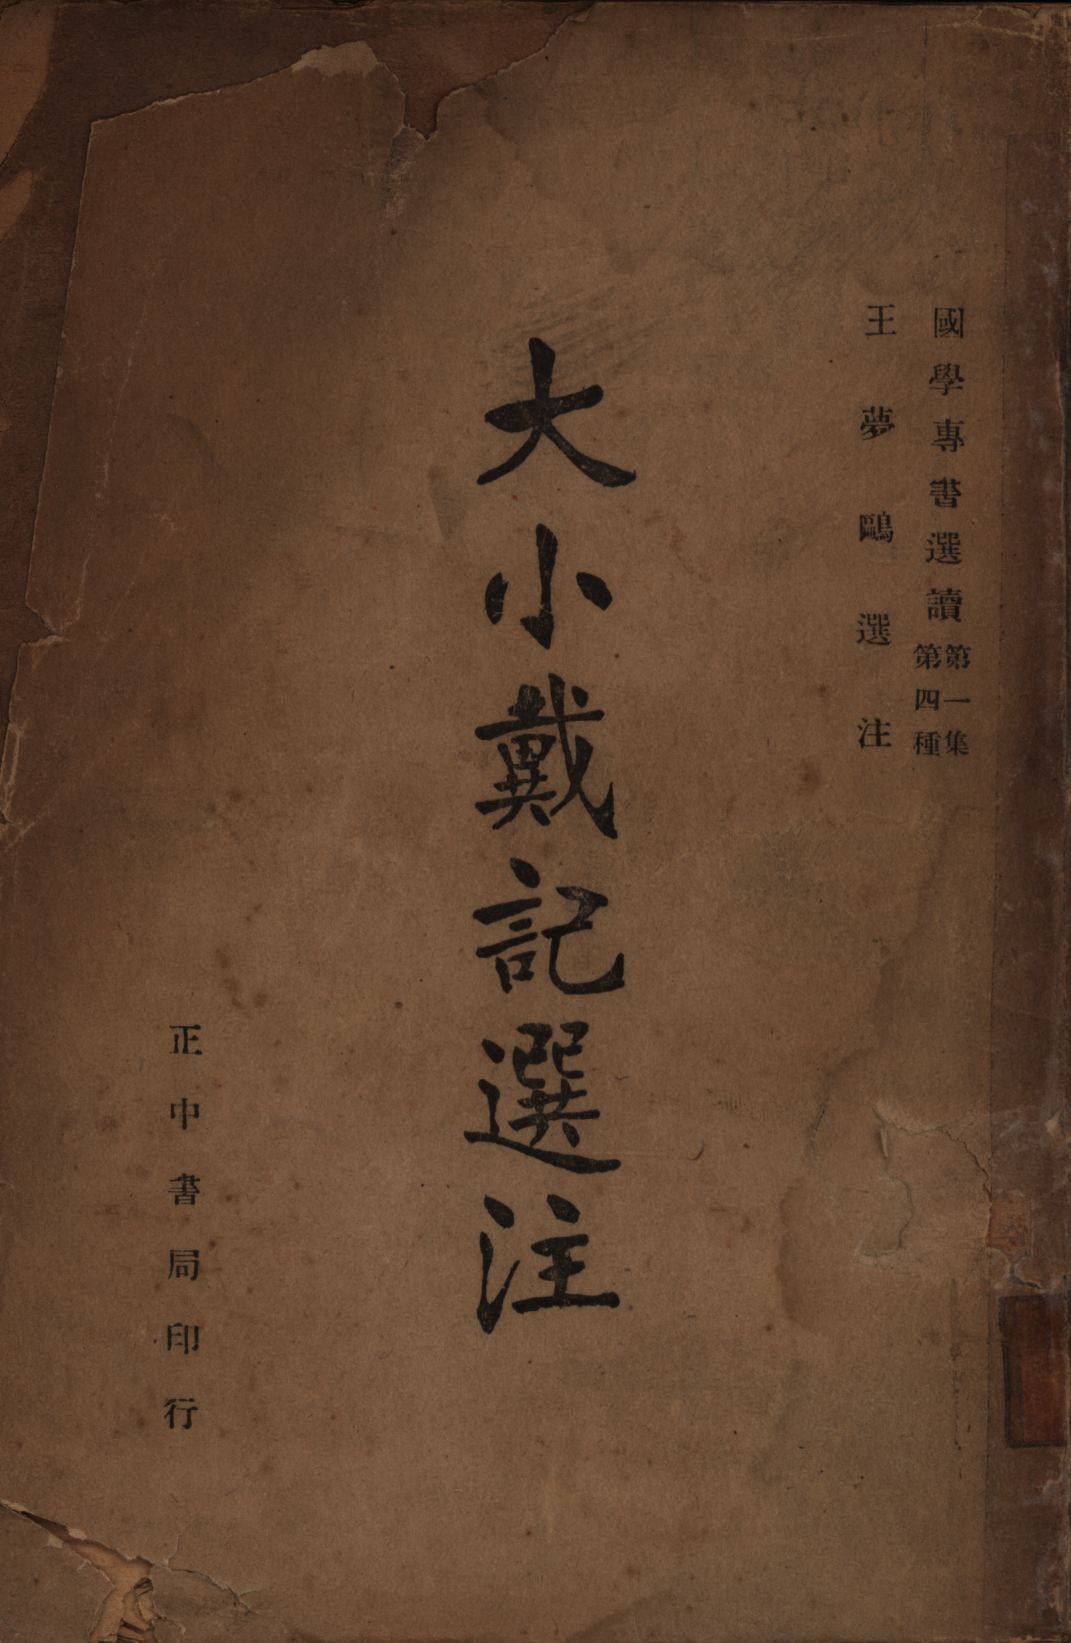 國學專書選讀
第一集
第四種
王夢鷗選注
大小戴記選注
正中書局印行